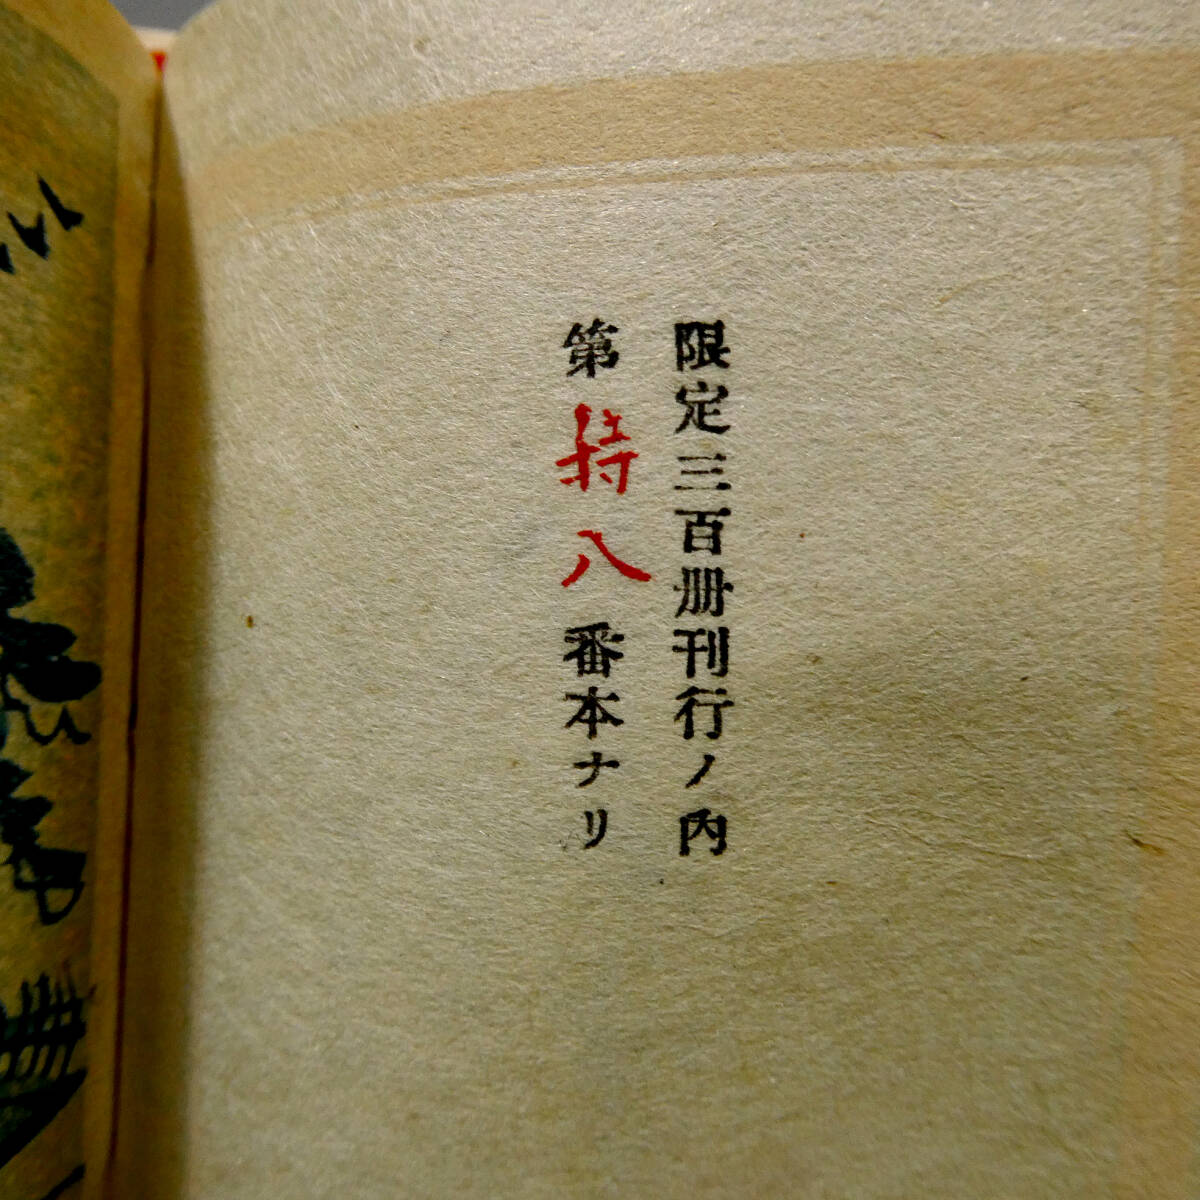 限定三百册刊行ノ內
第特八番本ナリ